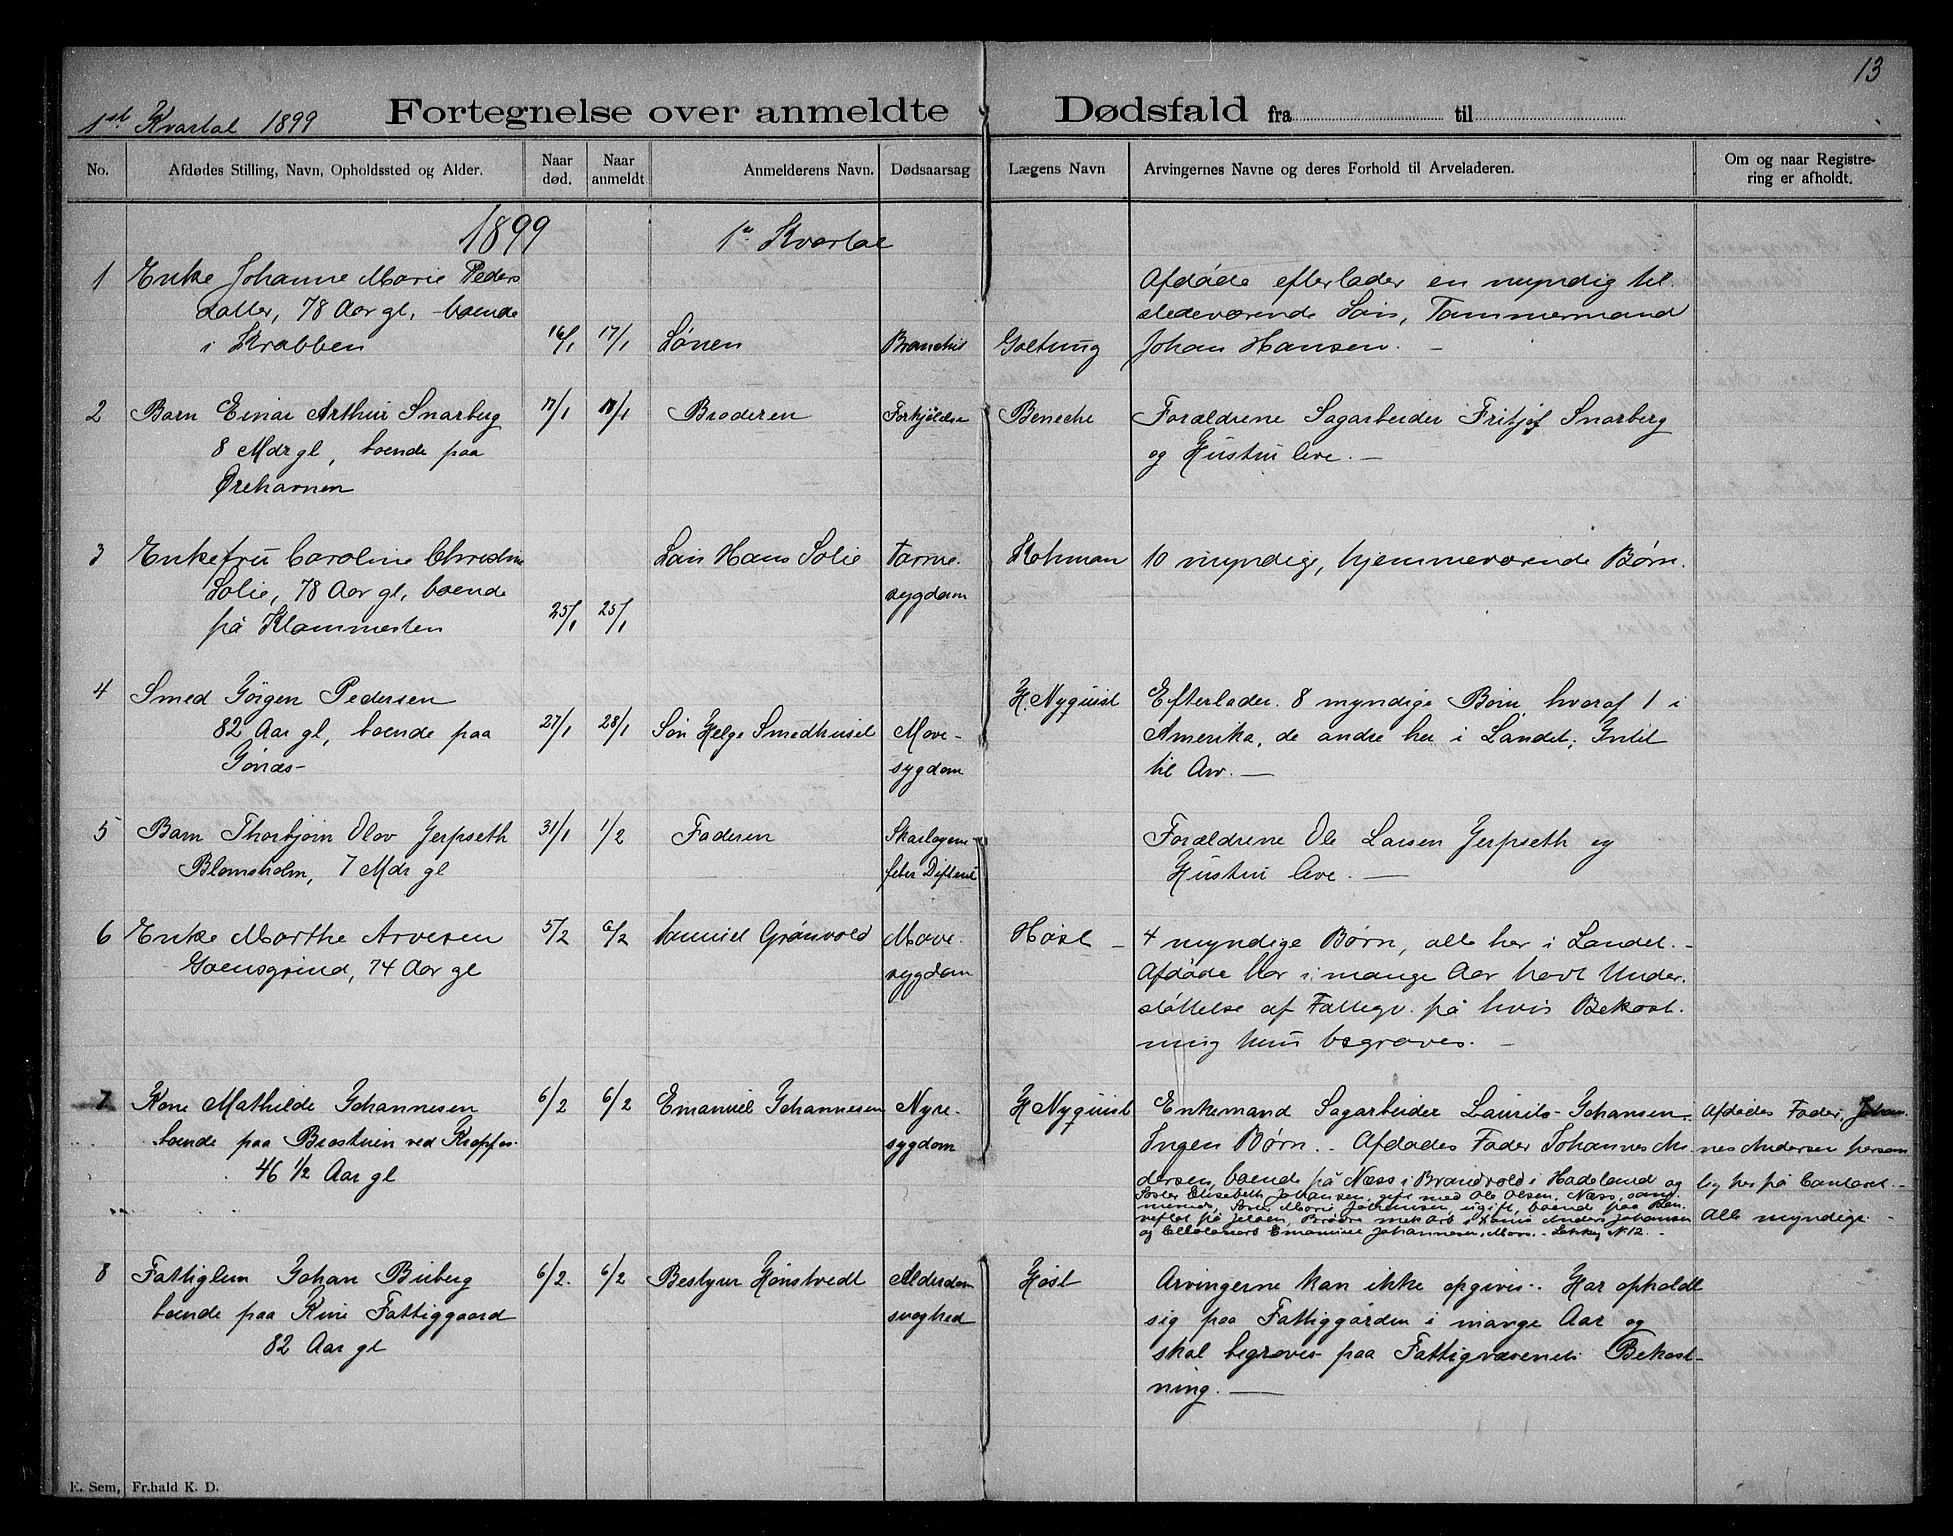 13
1st Kvartal 1899 Fortegnelse over anmeldte Dødsfald fra til
No. Afdødes Stilling, Navn, Opholdssted og Alder. Naar død. Naar anmeldt Anmelderens Navn. Dødsaarsag Lægens Navn Arvingernes Navne og deres Forhold til Arveladeren. Om og naar Registrering er afholdt.
1899 1ste Kvartal
1 Enke Johanne Marie Peders Afdøde efterlader en myndig til
datter, 78 Aar gl, boende stedeværende Søn, Tømmermand
i Krabben 16/1 17/1 Sønen Bronchit Galtung Johan Hansen. —
2 Barn Einar Arthur Snarberg 17/1 17/1 Broderen Forkjølelse Beneche Forældrene Sagarbeider Fritjof Snarberg
8 Mdr gl, boende paa og Hustru leve. —
Ørehavnen
3 Enkefru Caroline Christine Søn Hans Solie Tarm- Hohman 10 myndige, hjemmeværende Børn.
Solie, 78 Aar gl, boende sygdom
på Klommesten 25/1 25/1
4 Smed Jörgen Pedersen H. Nyquist Efterlader 8 myndige Børn hvoraf 1 i
82 Aar gl, boende paa 27/1 28/1 Søn Helge Smedhusel Mave- Amerika, de andre her i Landet; Intet
Gønæs sygdom til Arv. —
5 Barn Thorbjørn Olav Jerpseth 31/1 1/2 Faderen Skarlagens- Forældrene Ole Larsen Jerpseth og
Blomsholm, 7 Mdr gl feber Difterit Hustru leve. —
6 Enke Marthe Arvesen 5/2 6/2 Grønvold Mave- Høst — 4 myndige Børn, alle her i Landet. —
74 Aar gl sygdom Afdøde har i mange Aar havt Under-
støttelse af Fattigv. på hvis Bekost-
ning hun begraves. —
7 Kone Mathilde Johannesen 6/2 6/2 Emanuel Johannesen Nyre- H Nyquist Enkemand Sagarbeider Laurits Johansen. Afdødes Fader, Johan-
boende paa Brostuen ved Krapfos sygdom Ingen Børn. – Afdødes Fader Johannes An- nes Andersen person-
46 1/2 Aar gl dersen, boende på Næss i Brandvold i Hadeland og lig her på Contoret. —
Søster Elisabeth Johansen, gift med Ole Olsen, Næss, sam-
mesteds, Søster Marie Johannesen, ugift, boende paa Alle myndige —
på Jeløen, Brødre Anders Johansen
og Emanuel Johannesen, Moss.
8 Fattiglem Johan Buberg 6/2. 6/2 Bestyrer Hønstvedt Alderdoms- Høst Arvingerne kan ikke opgives. Har opholdt
boende paa Kure Fattiggaard svaghed sig paa Fattiggården i mange Aar og
82 Aar gl skal begraves paa Fattigvæsenets Bekost-
ning. —
E. Sem, Fr.hald K. D.